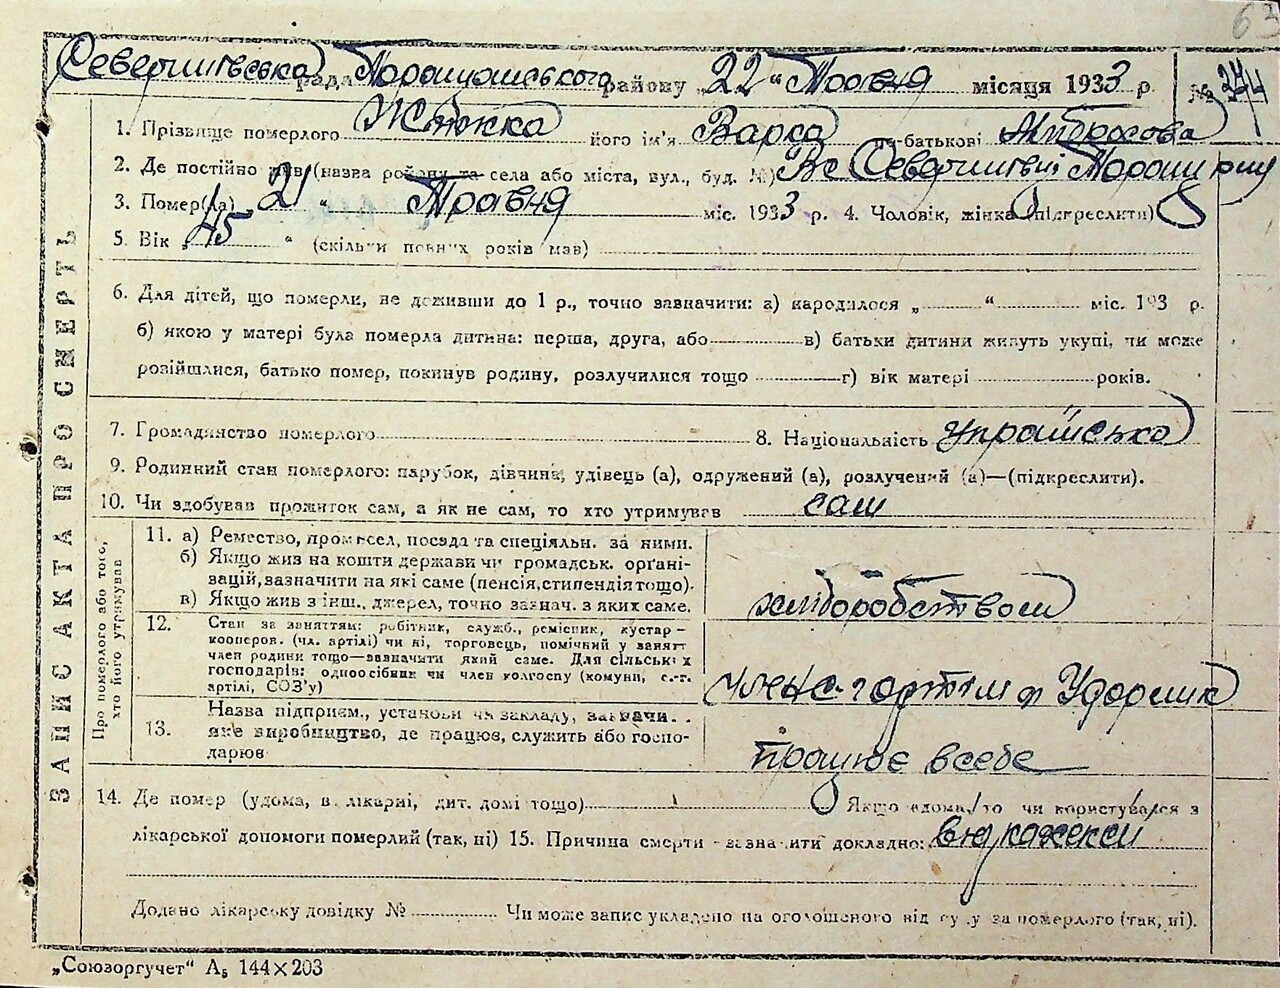 63
рада району „22“ Травня місяця 1933 р. №
1. Прізвище померлого його ім'я Варка по-батькові
2. Де постійно жив (назва району та села або міста, вул., буд. №)
3. Помер(ла) „21“ Травня міс. 1933 р. 4. Чоловік, жінка (підгреслити)
5. Вік „45“ (скільки повних років мав)
6. Для дітей, що померли, не доживши до 1 р., точно зазначити: а) народилося „ “ міс. 193 р.
б) якою у матері була померла дитина: перша, друга, або в) батьки дитини живуть укупі, чи може
розійшлися, батько помер, покинув родину, розлучилися тощо г) вік матері років.
7. Громадянство померлого 8. Національність
9. Родинний стан померлого: парубок, дівчина, удівець (а), одружений (а), розлучений (а)—(підкреслити).
10. Чи здобував прожиток сам, а як не сам, то хто утримував сам
ЗАПИС АКТА ПРО СМЕРТЬ
Про померлого або того,
хто його утримував
11. а) Ремество, промисел, посада та спеціяльн. за ними.
б) Якщо жив на кошти держави чи громадськ. орґані-
зацій, зазначити на які саме (пенсія, стипендія тощо).
в) Якщо жив з інш., джерел, точно зазнач. з яких саме.
хліборобством
12. Стан за заняттям: робітник, служб., ремісник, кустар-
кооперов. (чл. артілі) чи ні, торговець, помічний у занятт
член родини тощо—зазначити який саме. Для сільськ х
господарів: одноосібник чи член колгоспу (комуни, с.-г.
артілі, СОЗ'у)
13. Назва підприєм., установи чи закладу, зазначи. .
яке виробництво, де працює, служить або госпо-
дарює
працює в себе
14. Де помер (удома, в лікарні, дит. домі тощо) Якщо вдома, то чи користувався з
лікарської допомоги померлий (так, ні) 15. Причина смерти зазначити докладно:
Додано лікарську довідку № Чи може запис укладено на оголошеного від суду за померлого (так, ні).
„Союзоргучет“ А₅ 144×203